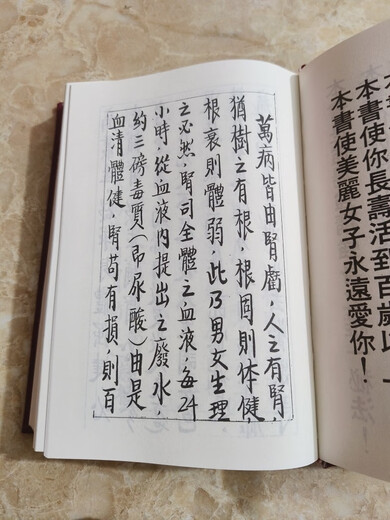 本書使你長壽活到百歲以
本書使美麗女子永遠愛你！
萬病皆由腎虧，人之有腎，
猶樹之有根，根固則體健，
根衰則體弱，此乃男女生理
之必然，腎司全體之血液，每24
小時從血液內提出之廢水，
約三磅毒質（即尿酸）由是
血清體健，腎苟有損，則百